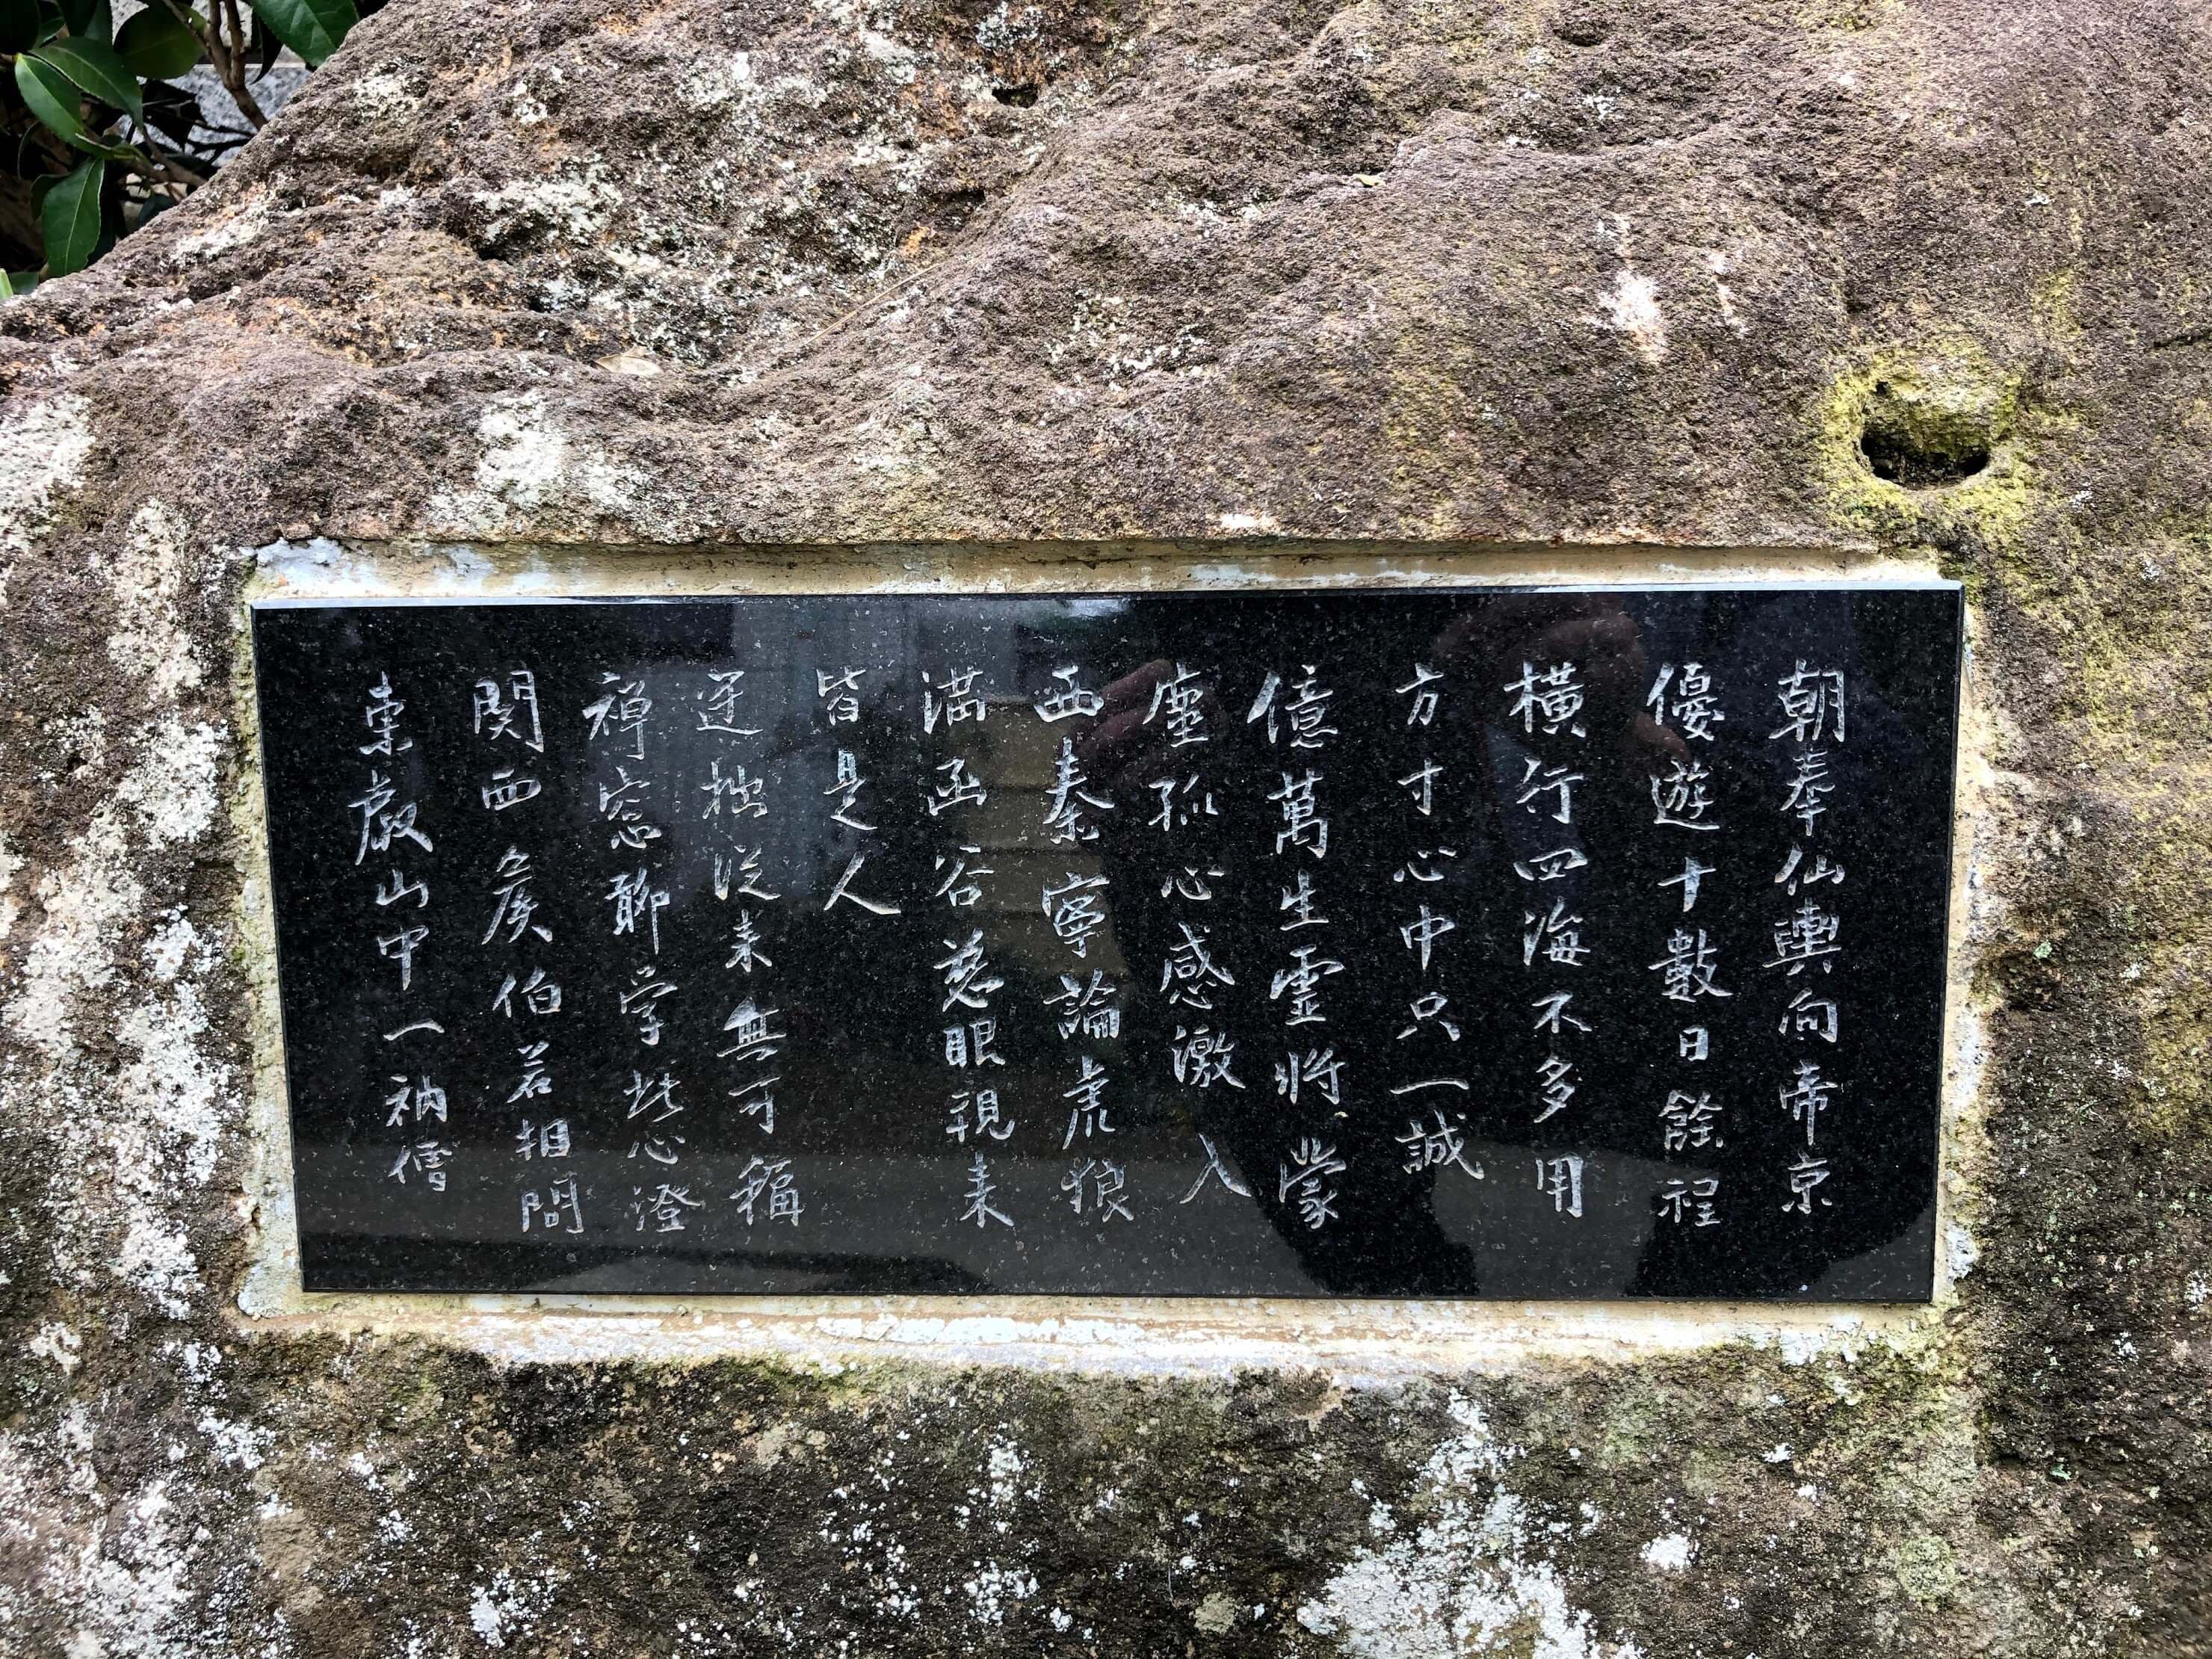 朝奉仙輿向帝京
優遊十數日餘程
横行四海不多用
方寸心中只一誠
億萬生霊将蒙
塵孤心感激入
西秦寧論虎狼
満函谷慈眼視来
皆是人
迂拙従来無可稱
禅窓聊学此心澄
関西侯伯若相問
東巌山中一衲僧